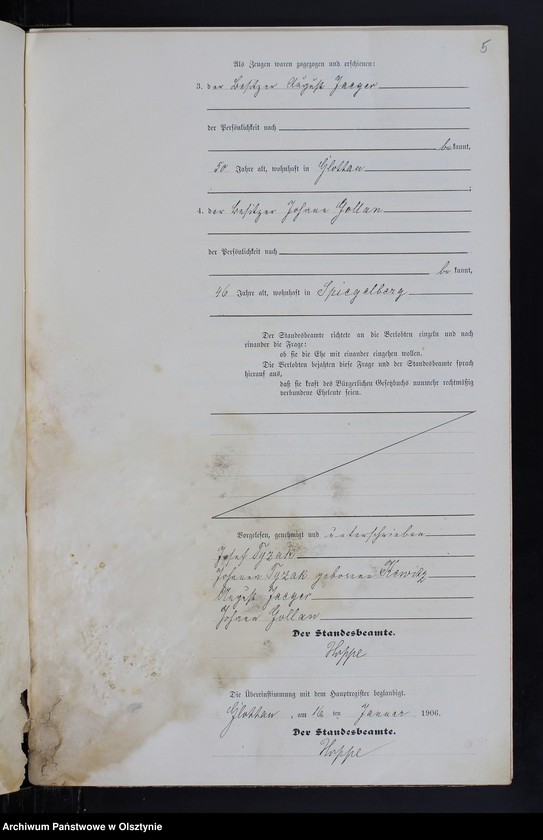 5
Als Zeugen waren zugezogen und erschienen:
3. der Besitzer August Jaeger
der Persönlichkeit nach
be kannt,
50 Jahre alt, wohnhaft in Glottau
;
4. der Besitzer Johann Gollan
der Persönlichkeit nach
be kannt,
46 Jahre alt, wohnhaft in Spiegelberg
Der Standesbeamte richtete an die Verlobten einzeln und nach
einander die Frage:
ob sie die Ehe mit einander eingehen wollen.
Die Verlobten bejahten diese Frage und der Standesbeamte sprach
hierauf aus,
daß sie kraft des Bürgerlichen Gesetzbuchs nunmehr rechtmäßig
verbundene Eheleute seien.
Vorgelesen, genehmigt und unterschrieben
Josef Tyzak
Johanna Tyzak geborene
August Jaeger
Johann Gollan
Der Standesbeamte.
Hoppe
Die Übereinstimmung mit dem Hauptregister beglaubigt.
Glottau, am 16 ten Januar 1906.
Der Standesbeamte.
Hoppe
Archiwum Państwowe w Olsztynie